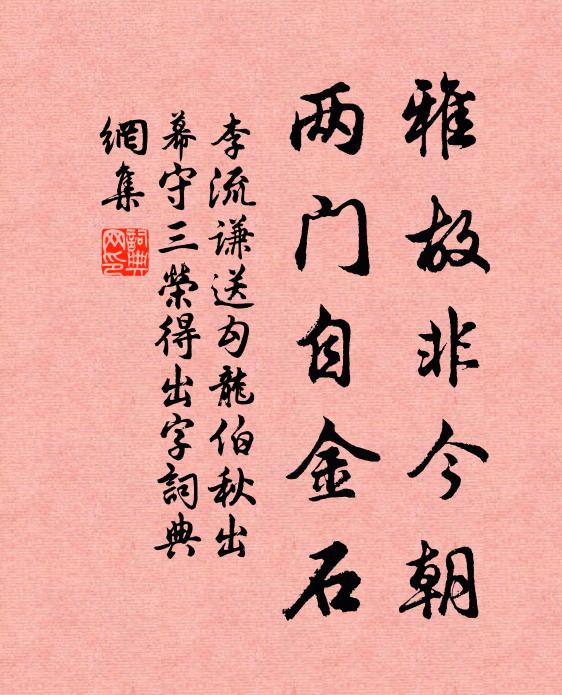 雅故非今朝
两门自金石
李流谦送勾龍伯秋出
幕守三榮得出字詞典
網集
詞典网印